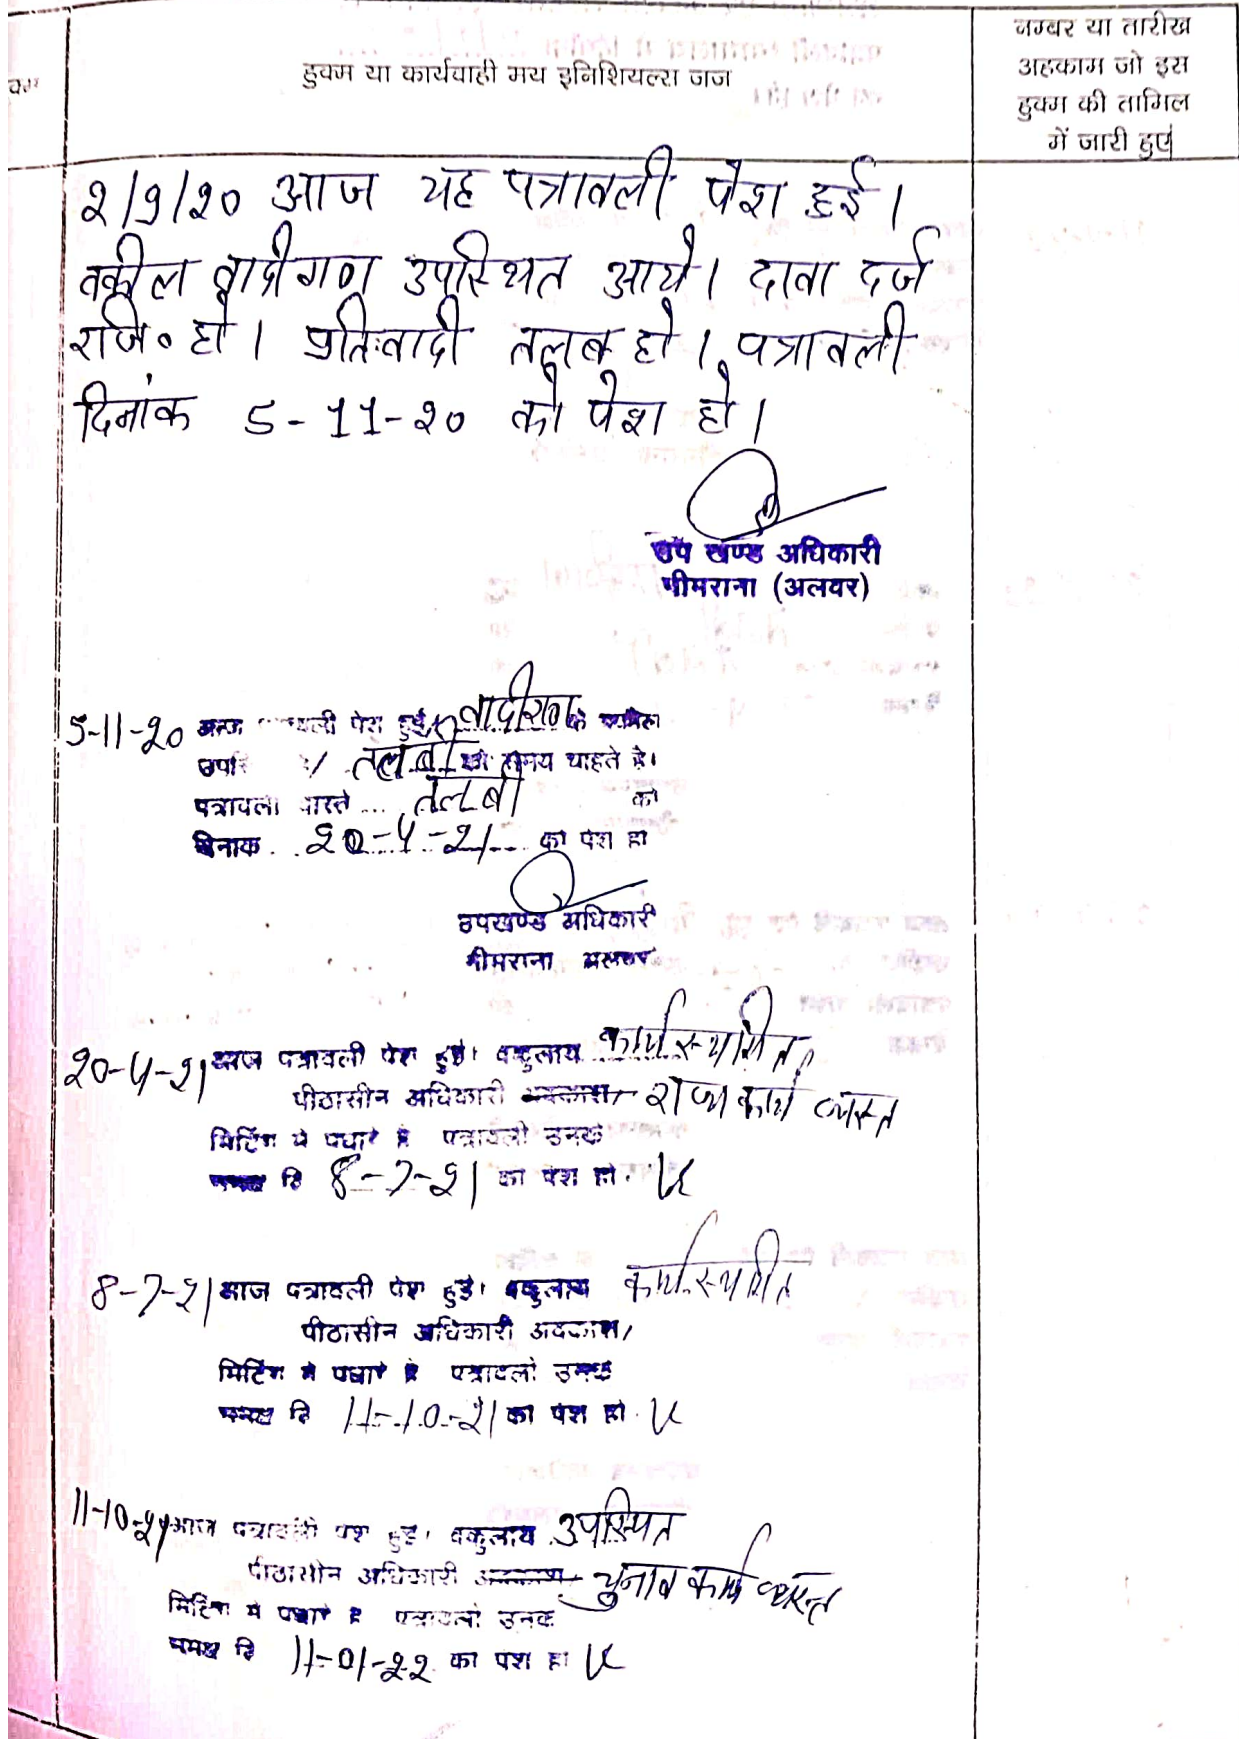 हुक्म या कार्यवाही मय इनिशियल्स जज
नम्बर या तारीख
अहकाम जो इस
हुक्म की तामिल
में जारी हुए
2/9/20 आज यह पत्रावली पेश हुई।
वकील वादीगण उपस्थित आये। दावा दर्ज
राजि॰ हो। प्रतिवादी तलब हो। पत्रावली
दिनांक 5-11-20 को पेश हो।
उप खण्ड अधिकारी
नीमराना (अलवर)
5-11-20 आज पत्रावली पेश हुई, वादीगण के वकील
तलबी को समय चाहते है।
पत्रावली वास्ते तलबी को
दिनांक 20-4-21 को पेश हो
उपखण्ड अधिकारी
नीमराना अलवर
20-4-21 आज पत्रावली पेश हुई। वकुलाय कार्य स्थगित,
पीठासीन अधिकारी अवकाश/ राज्य कार्य व्यस्त
मिटिंग में पधारे है पत्रावली उनके
समक्ष दि 8-7-21 को पेश हो.
8-7-21 आज पत्रावली पेश हुई। वकुलाय कार्य स्थगित
पीठासीन अधिकारी अवकाश/
मिटिंग में पधारे है पत्रावली उनके
समक्ष दि 11-10-21 को पेश हो.
11-10-21 आज पत्रावली पेश हुई। वकुलाय उपस्थित
पीठासीन अधिकारी अवकाश/ चुनाव कार्य व्यस्त
मिटिंग में पधारे है पत्रावली उनके
समक्ष दि 11-01-22 को पेश हो